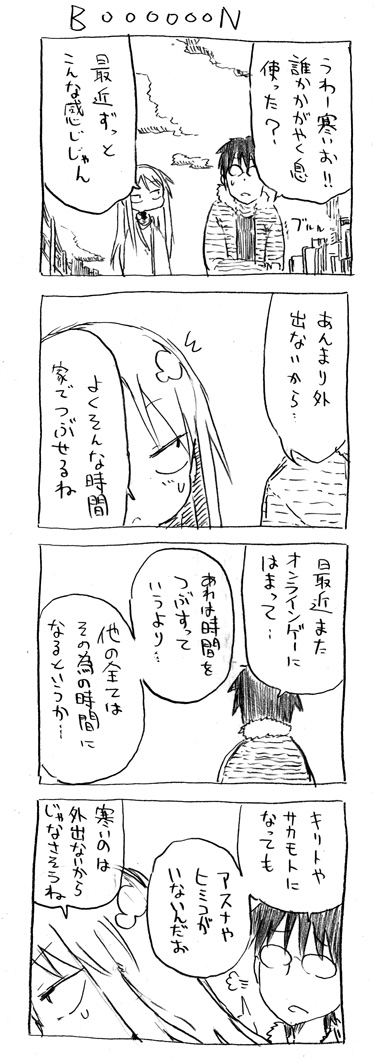 BOOOOOON
うわー寒いお!!
誰かかがやく息
使った?
ブルル
最近ずっと
こんな感じじゃん
あんまり外
出ないから…
よくそんな時間
家でつぶせるね
最近また
オンラインゲーに
はまって…
あれは時間を
つぶすって
いうより…
他の全ては
その為の時間に
なるというか…
キリトや
サカモトに
なっても
アスナや
ヒミコが
いないんだお
寒いのは
外出ないから
じゃなさそうね